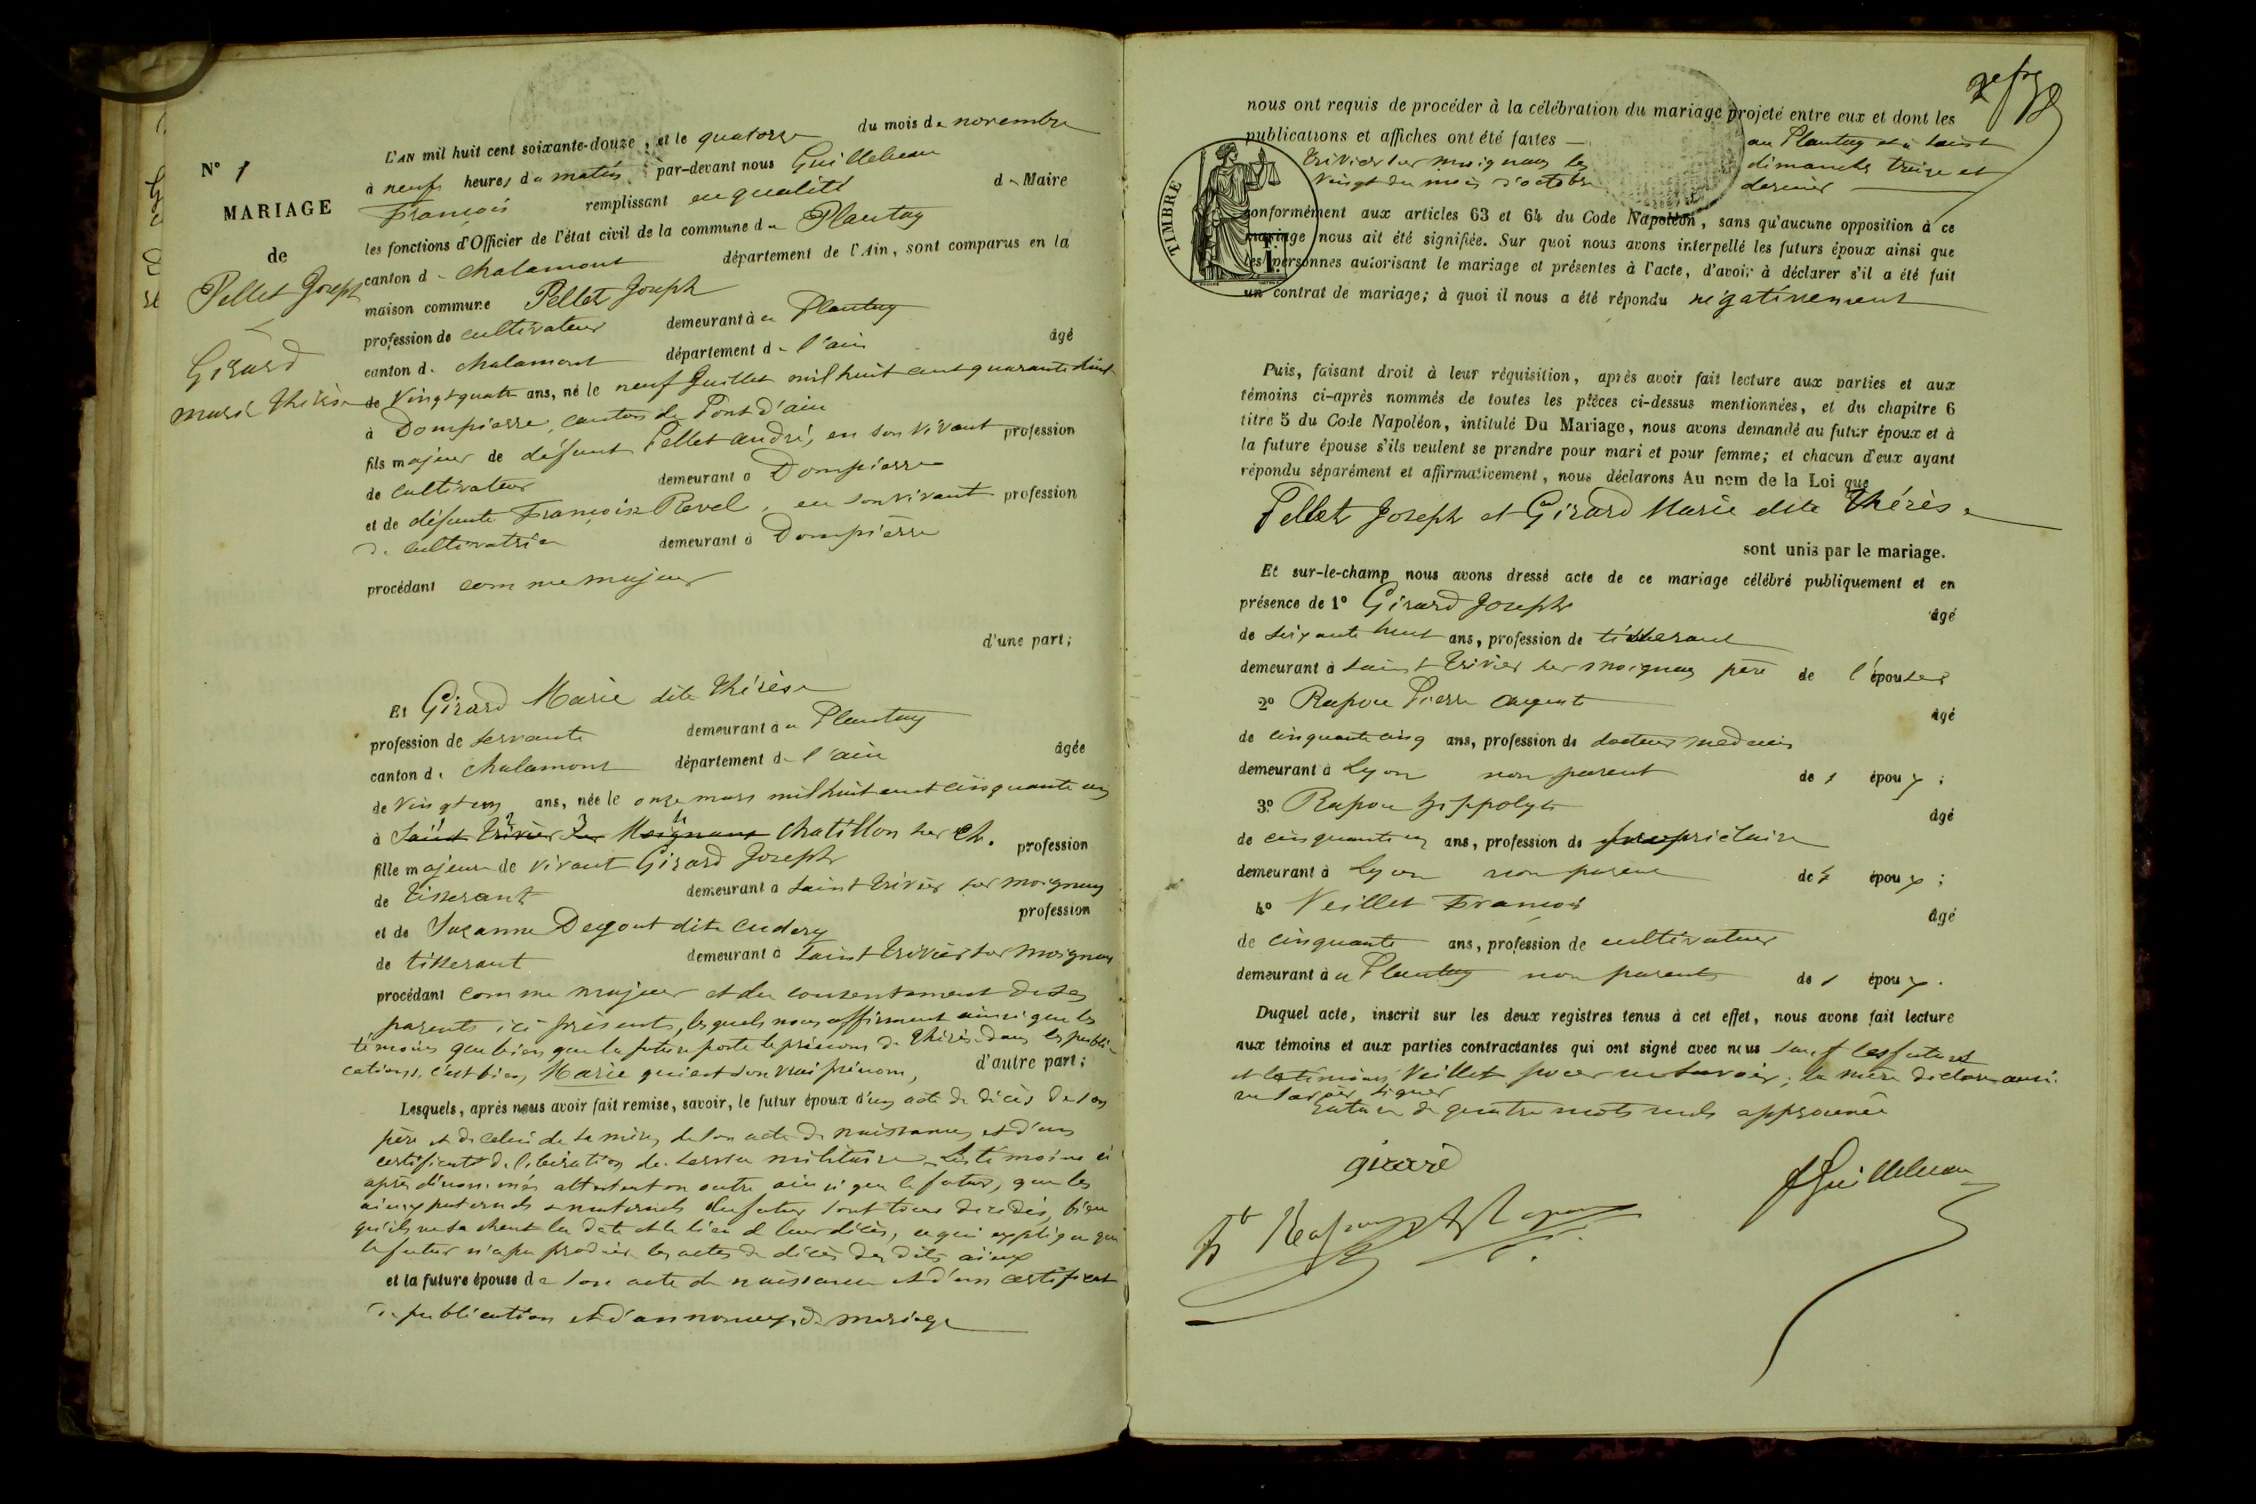 N° 1
MARIAGE
de
Pellet Joseph
Girard
Marie Thérèse
L'AN mil huit cent soixante-douze, et le quatorze du mois de novembre
à neuf heures du matin par-devant nous Guillebeau
François remplissant en qualité de Maire
les fonctions d'Officier de l'état civil de la commune du Plantay
canton de chalamont département de l'Ain, sont comparus en la
maison commune Pellet Joseph
profession de cultivateur demeurant à u Plantay
canton de chalamont département de l'ain âgé
de vingt quatre ans, né le neuf Juillet mil huit cent quarante huit
à Dompierre, canton de Pont d'ain
fils majeur de défunt Pellet andré, en son vivant profession
de cultivateur demeurant à Dompierre
et de défunte Françoise Revel, en son vivant profession
de cultivatrice demeurant à Dompierre
procédant comme majeur
d'une part;
Et Girard Marie dite Thérèse
profession de servante demeurant à u Plantay
canton de chalamont département de l'ain âgée
de vingt un ans, née le onze mars mil huit cent cinquante un
à Saint Trivier sur Moignans chatillon sur ch. profession
fille majeure de vivant Girard Joseph
de tisserant demeurant à saint trivier sur moignans
et de Suzanne Degout dite cudery profession
de tisserant demeurant à saint trivier sur moignans
procédant comme majeur et du consentement de ses
parents ici présents, lesquels nous affirment ainsi que les
témoins que bien que la future porte le prénom de Thérèse dans les publi-
cations, c'est bien Marie qui est son vrai prénom, d'autre part;
Lesquels, après nous avoir fait remise, savoir, le futur époux d'un acte de décès de son
père et de celui de sa mère, de son acte de naissance, et d'un
certificat de libération de service militaire. Les témoins ci
après dénommés attestent en outre ainsi que le futur, que les
aieux paternels et maternels du futur sont tous décédés, bien
qu'ils ne sachent la date et le lieu de leur décès, ce qui explique que
le futur n'a pu produire les actes de décès des dits aieux
et la future épouse de son acte de naissance et d'un certificat
de publication et d'annonces de mariage
nous ont requis de procéder à la célébration du mariage projeté entre eux et dont les
publications et affiches ont été faites au Plantay et à saint
trivier sur moignans les dimanche treize et
vingt du mois d'octobre dernier
TIMBRE
conformément aux articles 63 et 64 du Code Napoléon, sans qu'aucune opposition à ce
mariage nous ait été signifiée. Sur quoi nous avons interpellé les futurs époux ainsi que
les personnes autorisant le mariage et présentes à l'acte, d'avoir à déclarer s'il a été fait
un contrat de mariage; à quoi il nous a été répondu négativement
Puis, faisant droit à leur réquisition, après avoir fait lecture aux parties et aux
témoins ci-après nommés de toutes les pièces ci-dessus mentionnées, et du chapitre 6
titre 5 du Code Napoléon, intitulé Du Mariage, nous avons demandé au futur époux et à
la future épouse s'ils veulent se prendre pour mari et pour femme; et chacun d'eux ayant
répondu séparément et affirmativement, nous déclarons Au nom de la Loi que
Pellet Joseph et Girard Marie dite Thérèse
sont unis par le mariage.
Et sur-le-champ nous avons dressé acte de ce mariage célébré publiquement et en
présence de 1° Girard Joseph âgé
de soixante huit ans, profession de tisserant
demeurant à saint trivier sur moignans père de l'épouse
2° Rapou Pierre âgé
de cinquante cinq ans, profession de docteur medecin
demeurant à Lyon non parent de s époux;
3° Rapou hippolyte âgé
de cinquante un ans, profession de propriétaire
demeurant à Lyon non parent de s époux;
4° Veillet François âgé
de cinquante ans, profession de cultivateur
demeurant à u Plantay non parent de s époux.
Duquel acte, inscrit sur les deux registres tenus à cet effet, nous avons fait lecture
aux témoins et aux parties contractantes qui ont signé avec nous sauf les futurs
et le témoin Veillet pour ne savoir; la mère déclare aussi
ne savoir signer
rature de quatre mots nuls approuvée
girard
fGuillebeau